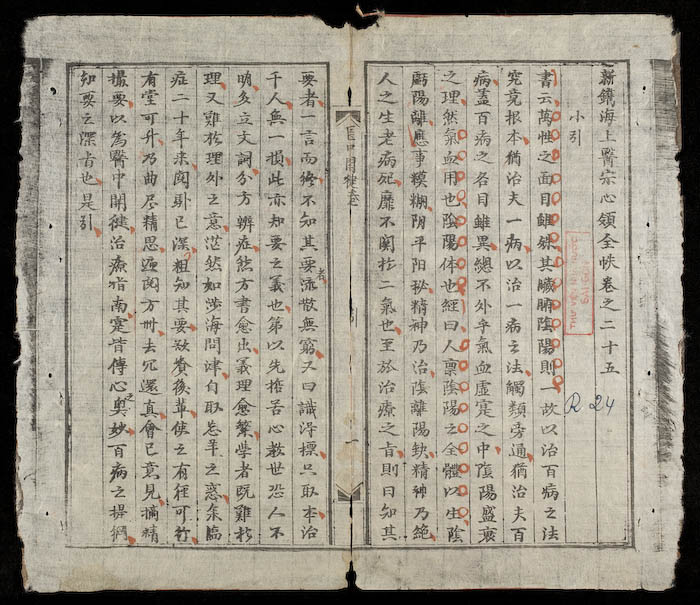 新鐫海上醫宗心領全帙卷之二十五
小引
書云萬性之面目雖殊其臟腑陰陽則一故以治百病之法
究竟根本猶治夫一病以治一病之法觸類旁通猶治夫百
病蓋百病之名目雖異總不外乎氣血虛寔之中陰陽盛衰
之理然氣血用也陰陽体也經曰人禀陰陽之全體以生陰
虧陽離應事糢糊阴平阳秘精神乃治陰離陽缺精神乃絕
人之生老病死靡不関於二氣也至於治療之旨則曰知其
R 24
醫中関楗
一
要者一言而終不知其要者流散無窮又曰識得標只取本治
千人無一損此亦知要之義也第以先哲苦心救世恐人不
明多立文詞分方辨症然方書愈出義理愈繁学者既難於
理又難於理外之意茫然如涉海問津自取忘羊之惑余臨
症二十年来閱歷已深粗知其要欲後軰使之有徑可行
有堂可升乃曲尽精思方去冗還真會已意見摘精
撮要以為醫中関楗治療指南寔皆傳心之奥妙百病之提綱
知要之深旨也是引